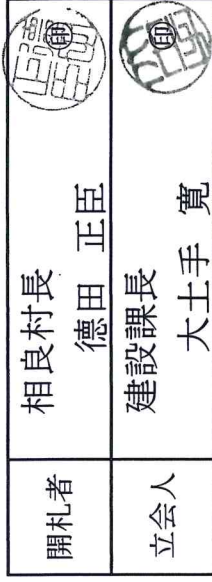 開札者
相良村長
徳田 正臣 ㊞
立会人
建設課長
大土手 寛 ㊞